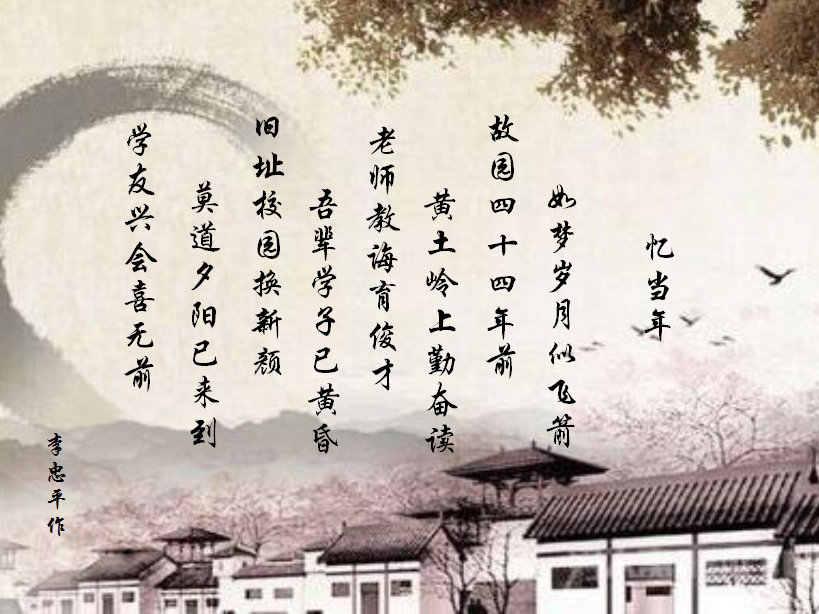 忆当年
如梦岁月似飞箭
故园四十四年前
黄土岭上勤奋读
老师教诲育俊才
吾辈学子已黄昏
旧址校园换新颜
莫道夕阳已来到
学友兴会喜无前
李忠平作